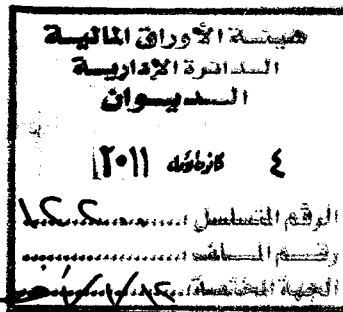 هيئة الأوراق المالية
الدائرة الإدارية
الديوان
٤ كانون أول ٢٠١١
الرقم المتسلسل
رقم الملف
الجهة المختصة